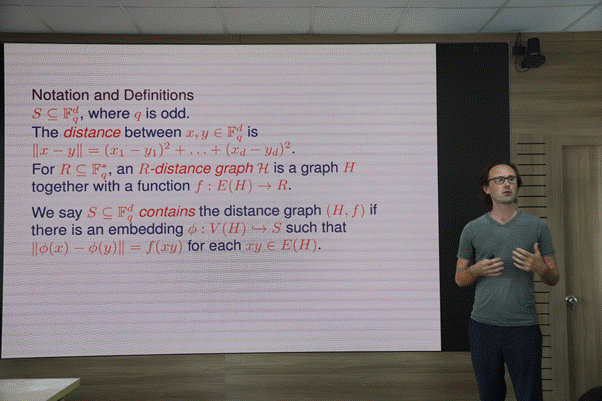 Notation and Definitions
S ⊆ 𝔽_q^d, where q is odd.
The distance between x, y ∈ 𝔽_q^d is
‖x − y‖ = (x₁ − y₁)² + … + (x_d − y_d)².
For R ⊆ 𝔽_q^*, an R-distance graph ℋ is a graph H
together with a function f : E(H) → R.
We say S ⊆ 𝔽_q^d contains the distance graph (H, f) if
there is an embedding ϕ : V(H) ↪ S such that
‖ϕ(x) − ϕ(y)‖ = f(xy) for each xy ∈ E(H).